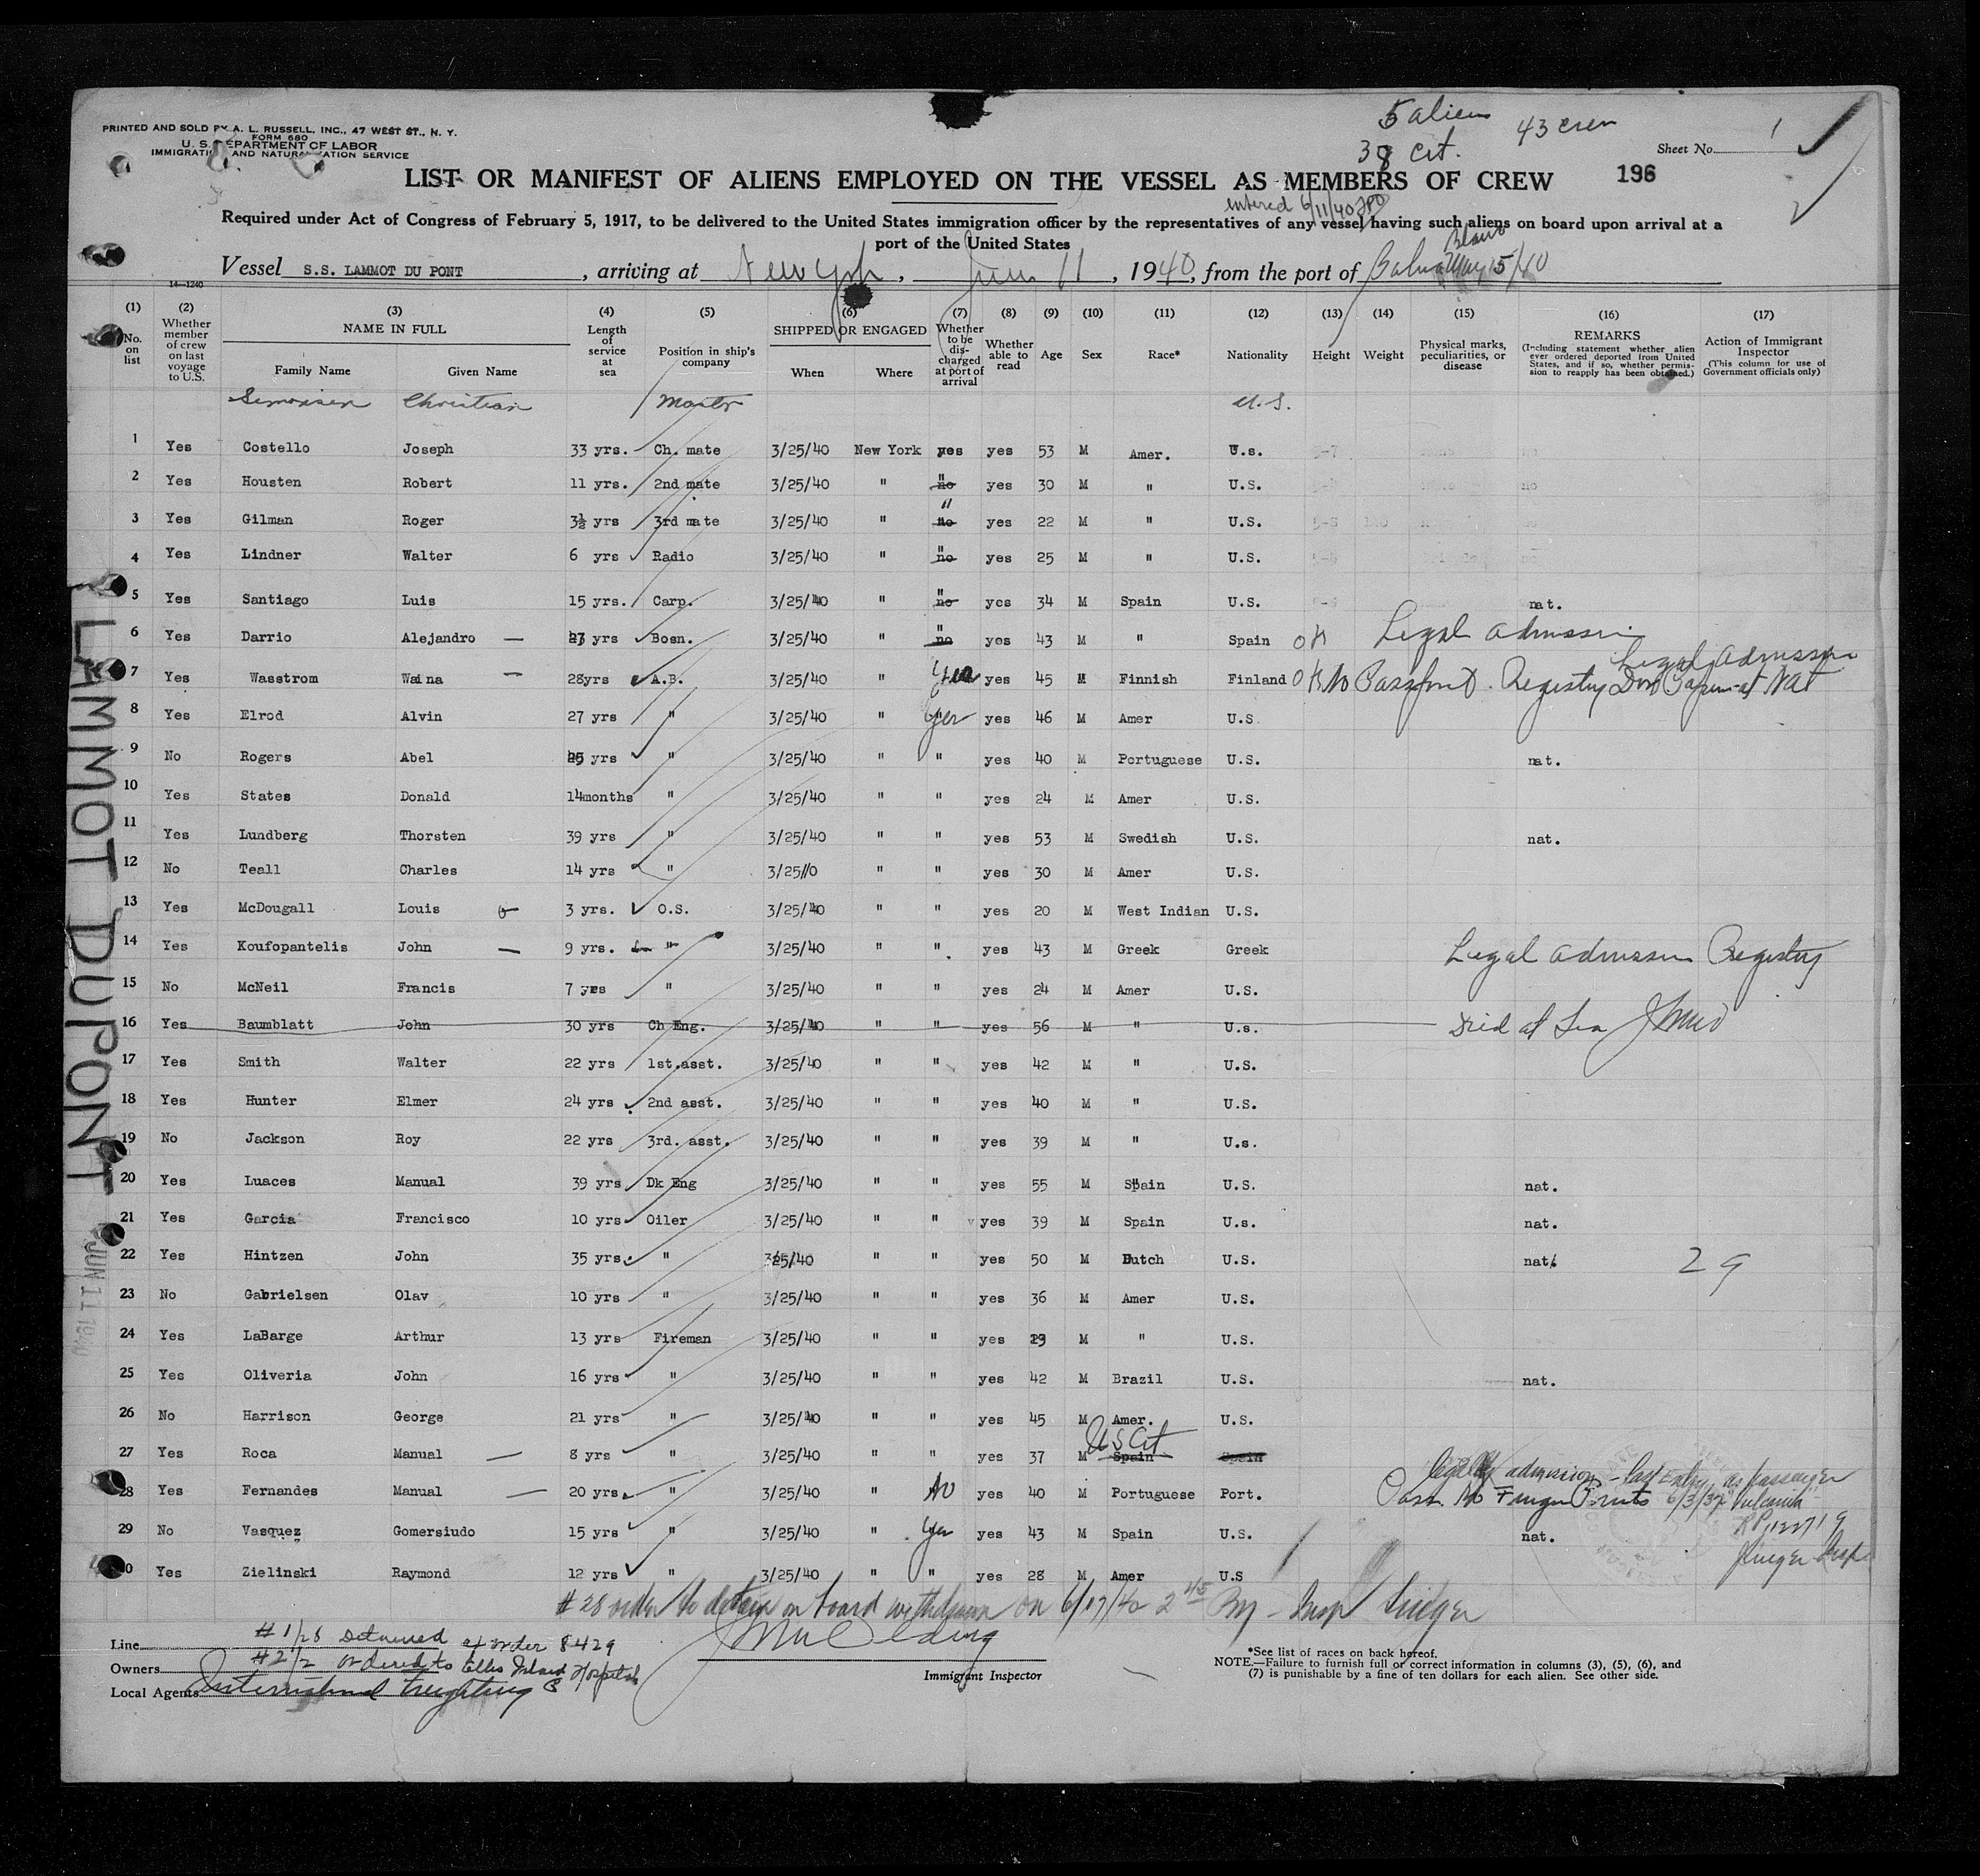 5 aliens 43 crew
38 Cit.
PRINTED AND SOLD BY A. L. RUSSELL, INC., 47 WEST ST., N. Y.
FORM 680
U. S. DEPARTMENT OF LABOR
IMMIGRATION AND NATURALIZATION SERVICE
Sheet No. 1
LIST OR MANIFEST OF ALIENS EMPLOYED ON THE VESSEL AS MEMBERS OF CREW 196
entered 6/11/40
Required under Act of Congress of February 5, 1917, to be delivered to the United States immigration officer by the representatives of any vessel having such aliens on board upon arrival at a
port of the United States
Vessel S.S. LAMMOT DU PONT, arriving at New York, June 11, 1940, from the port of Bahia Blanc May 15/40
14—1240
(1) (2) (3) (4) (5) (6) (7) (8) (9) (10) (11) (12) (13) (14) (15) (16) (17)
No. on list Whether member of crew on last voyage to U.S. NAME IN FULL Family Name Given Name Length of service at sea Position in ship's company SHIPPED OR ENGAGED When Where Whether to be discharged at port of arrival Whether able to read Age Sex Race* Nationality Height Weight Physical marks, peculiarities, or disease REMARKS (Including statement whether alien ever ordered deported from United States, and if so, whether permission to reapply has been obtained.) Action of Immigrant Inspector (This column for use of Government officials only)
Simonsen Christian Master U.S.
1 Yes Costello Joseph 33 yrs. Ch. mate 3/25/40 New York yes yes 53 M Amer. U.s.
2 Yes Housten Robert 11 yrs. 2nd mate 3/25/40 " no " yes 30 M " U.S. no
3 Yes Gilman Roger 3½ yrs 3rd mate 3/25/40 " no " yes 22 M " U.S.
4 Yes Lindner Walter 6 yrs Radio 3/25/40 " no " yes 25 M " U.S.
5 Yes Santiago Luis 15 yrs. Carp. 3/25/40 " no " yes 34 M Spain U.S. nat.
6 Yes Darrio Alejandro — 27 yrs Bosn. 3/25/40 " no " yes 43 M " Spain OK Legal admission
7 Yes Wasstrom Waina — 28yrs A.B. 3/25/40 " yes yes 45 M Finnish Finland OK No Passport. Registry Legal Admission Nat
8 Yes Elrod Alvin 27 yrs " 3/25/40 " yes yes 46 M Amer U.S.
9 No Rogers Abel 25 yrs " 3/25/40 " " yes 40 M Portuguese U.S. nat.
10 Yes States Donald 14months " 3/25/40 " " yes 24 M Amer U.S.
11 Yes Lundberg Thorsten 39 yrs " 3/25/40 " " yes 53 M Swedish U.S. nat.
12 No Teall Charles 14 yrs " 3/25//0 " " yes 30 M Amer U.S.
13 Yes McDougall Louis 3 yrs. O.S. 3/25/40 " " yes 20 M West Indian U.S.
14 Yes Koufopantelis John — 9 yrs. " 3/25/40 " " yes 43 M Greek Greek Legal admission Registry
15 No McNeil Francis 7 yrs " 3/25/40 " " yes 24 M Amer U.S.
16 Yes Baumblatt John 30 yrs Ch Eng. 3/25/40 " " yes 56 M " U.s. Died at Sea
17 Yes Smith Walter 22 yrs 1st.asst. 3/25/40 " " yes 42 M " U.S.
18 Yes Hunter Elmer 24 yrs 2nd asst. 3/25/40 " " yes 40 M " U.S.
19 No Jackson Roy 22 yrs 3rd. asst. 3/25/40 " " yes 39 M " U.s.
20 Yes Luaces Manual 39 yrs Dk Eng 3/25/40 " " yes 55 M Spain U.S. nat.
21 Yes Garcia Francisco 10 yrs Oiler 3/25/40 " " yes 39 M Spain U.s. nat.
22 Yes Hintzen John 35 yrs. " 3/25/40 " " yes 50 M Dutch U.S. nat. 29
23 No Gabrielsen Olav 10 yrs " 3/25/40 " " yes 36 M Amer U.S.
24 Yes LaBarge Arthur 13 yrs Fireman 3/25/40 " " yes 29 M " U.S.
25 Yes Oliveria John 16 yrs " 3/25/40 " " yes 42 M Brazil U.S. nat.
26 No Harrison George 21 yrs " 3/25/40 " " yes 45 M Amer. U.S.
27 Yes Roca Manual — 8 yrs " 3/25/40 " " yes 37 M Spain US Cit Spain
28 Yes Fernandes Manual — 20 yrs. " 3/25/40 " No yes 40 M Portuguese Port. legally admission - last Entry as passenger
No Finger Prints 6/3/37 Vulcania
29 No Vasquez Gomersiudo 15 yrs " 3/25/40 " Yes yes 43 M Spain U.S. nat.
30 Yes Zielinski Raymond 12 yrs " 3/25/40 " " yes 28 M Amer U.S
#28 order to detain on board withdrawn on 6/17/40 2 45 Pm - Insp
Line #1/28 Detained order 8429
Owners #2/2 Ordered to Ellis Island Hospital
Local Agents International Freighting
Immigrant Inspector
*See list of races on back hereof.
NOTE.—Failure to furnish full or correct information in columns (3), (5), (6), and
(7) is punishable by a fine of ten dollars for each alien. See other side.
LAMMOT DUPONT
JUN 11 1940